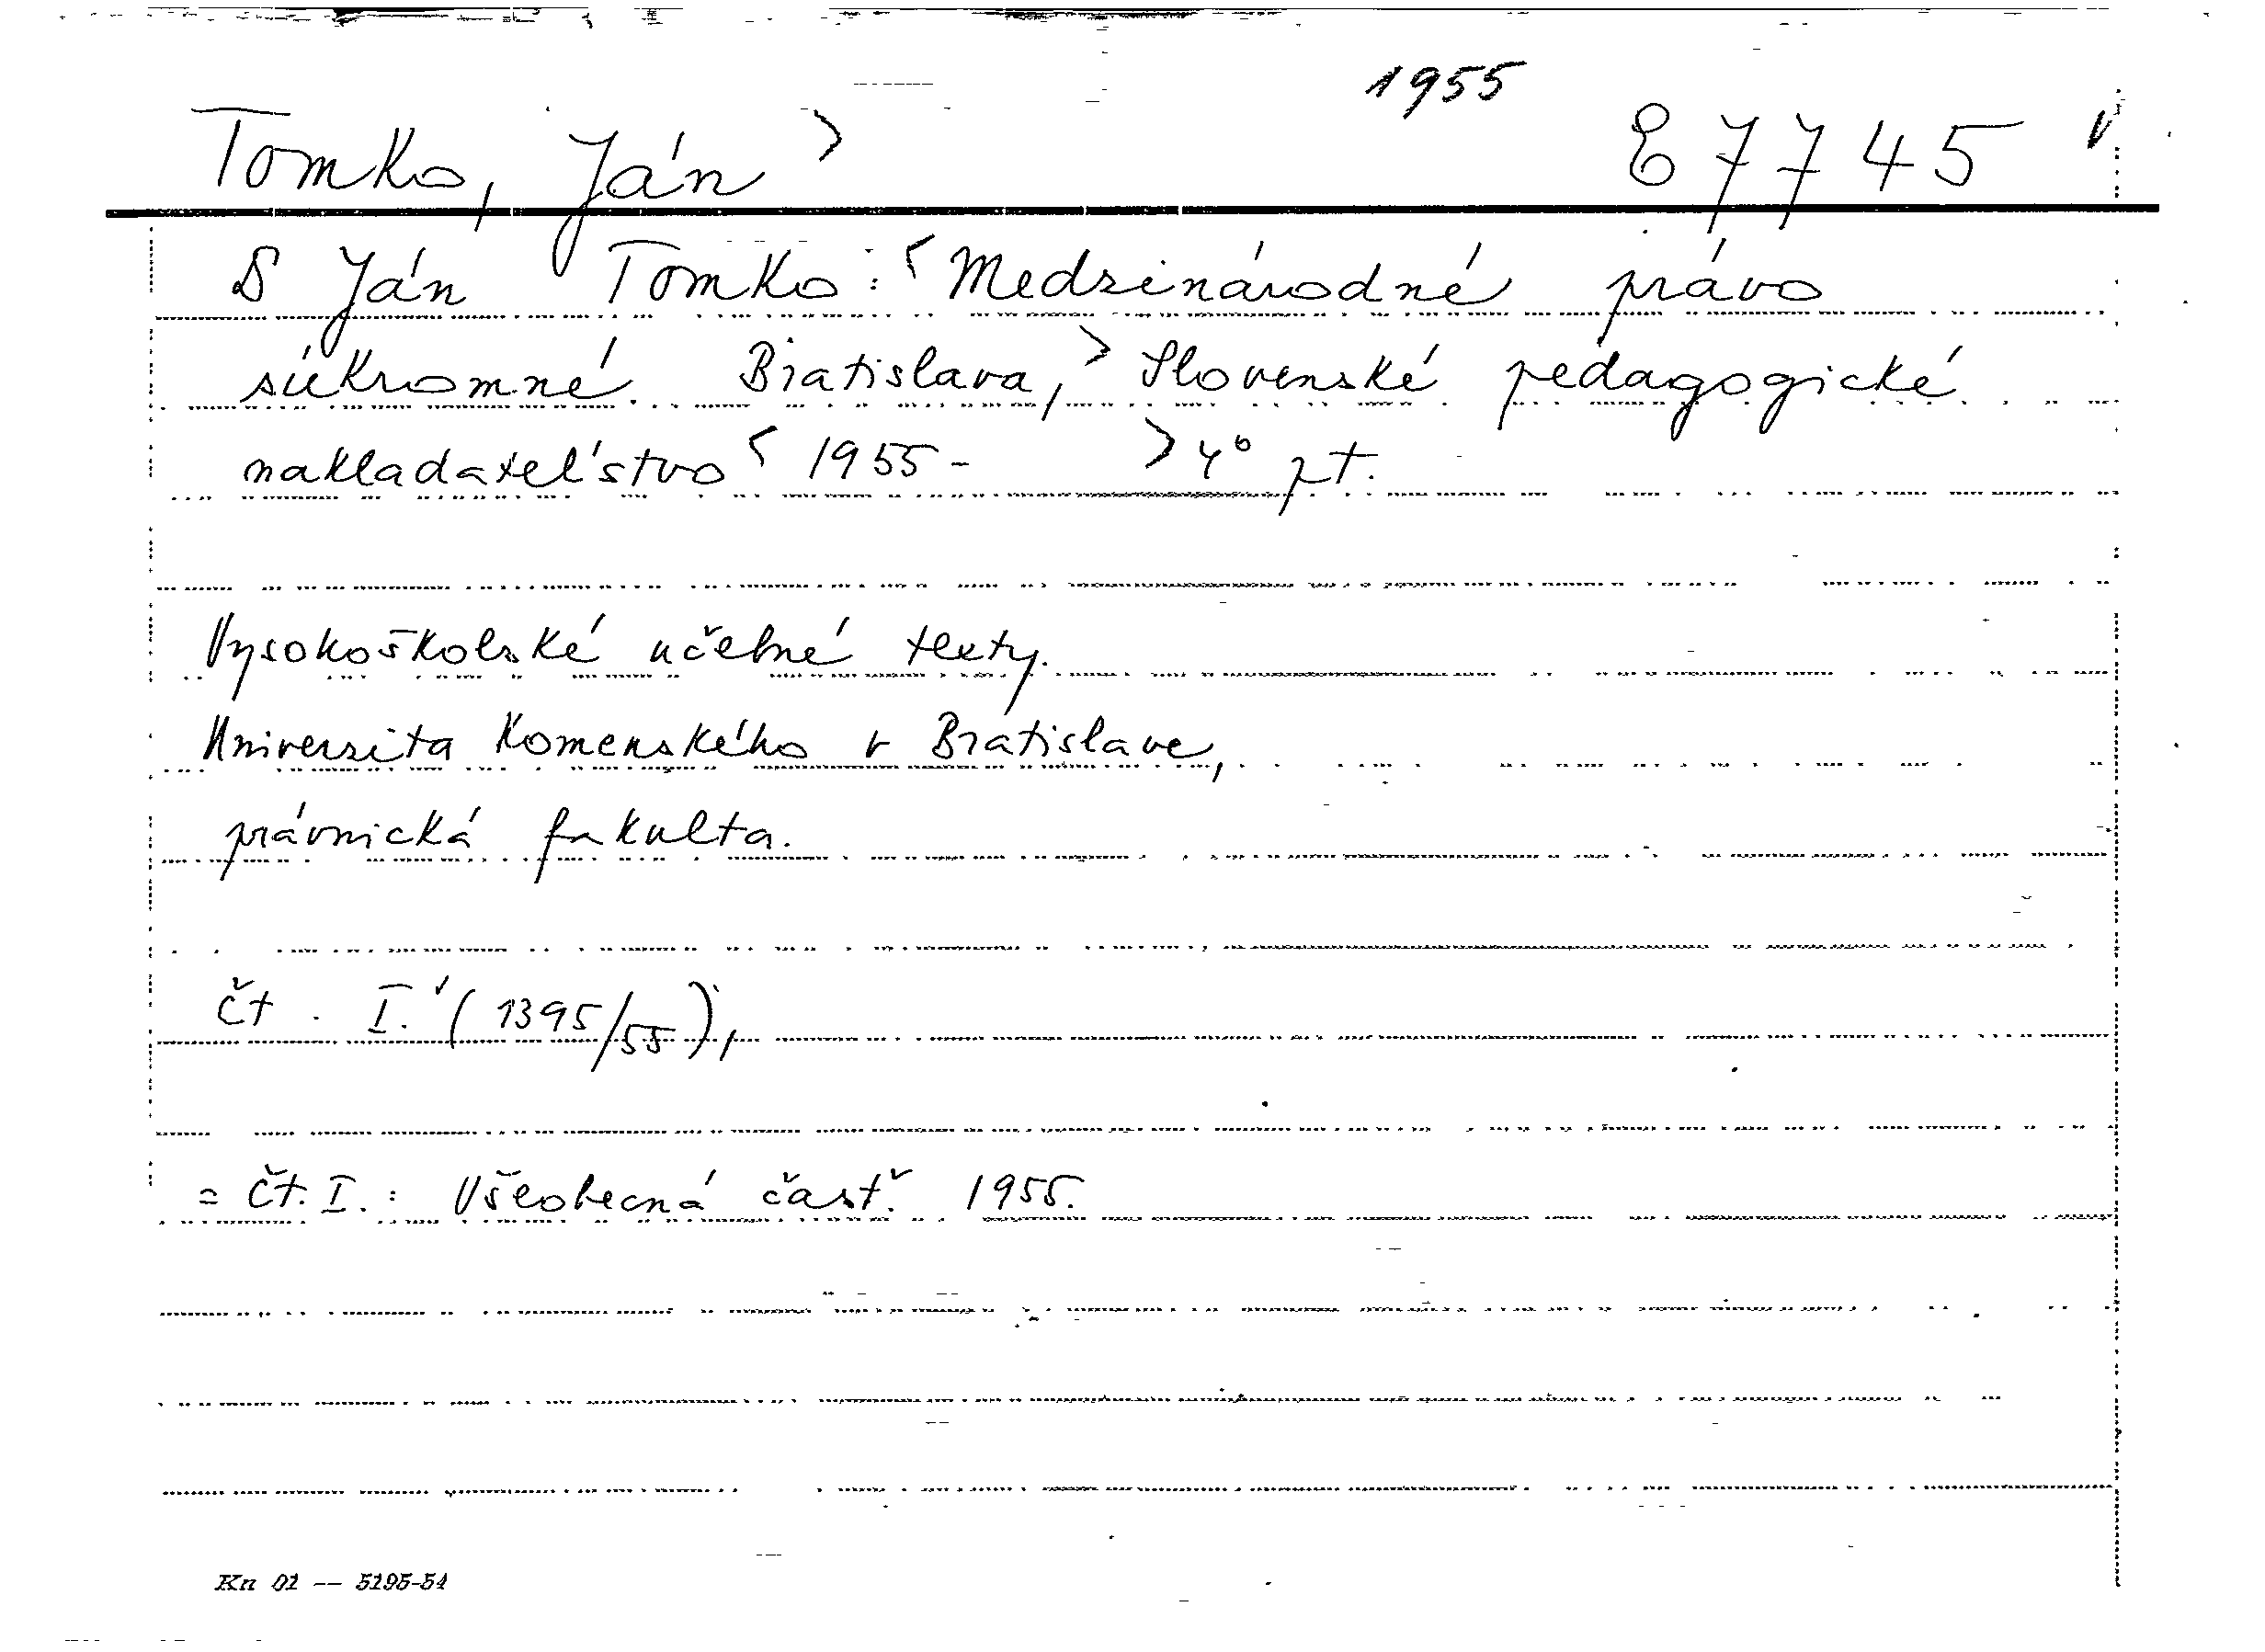 1955
Tomko, Ján > E7745 v
S Ján Tomko: < Medzinárodné právo
súkromné. Bratislava, > Slovenské pedagogické
nakladateľstvo < 1955 - > 4° pt.
Vysokoškolské učebné texty.
Universita Komenského v Bratislave,
právnická fakulta.
čt. I. (1395/55),
= čt. I.: Všeobecná časť. 1955.
Kn 01 -- 5195-54